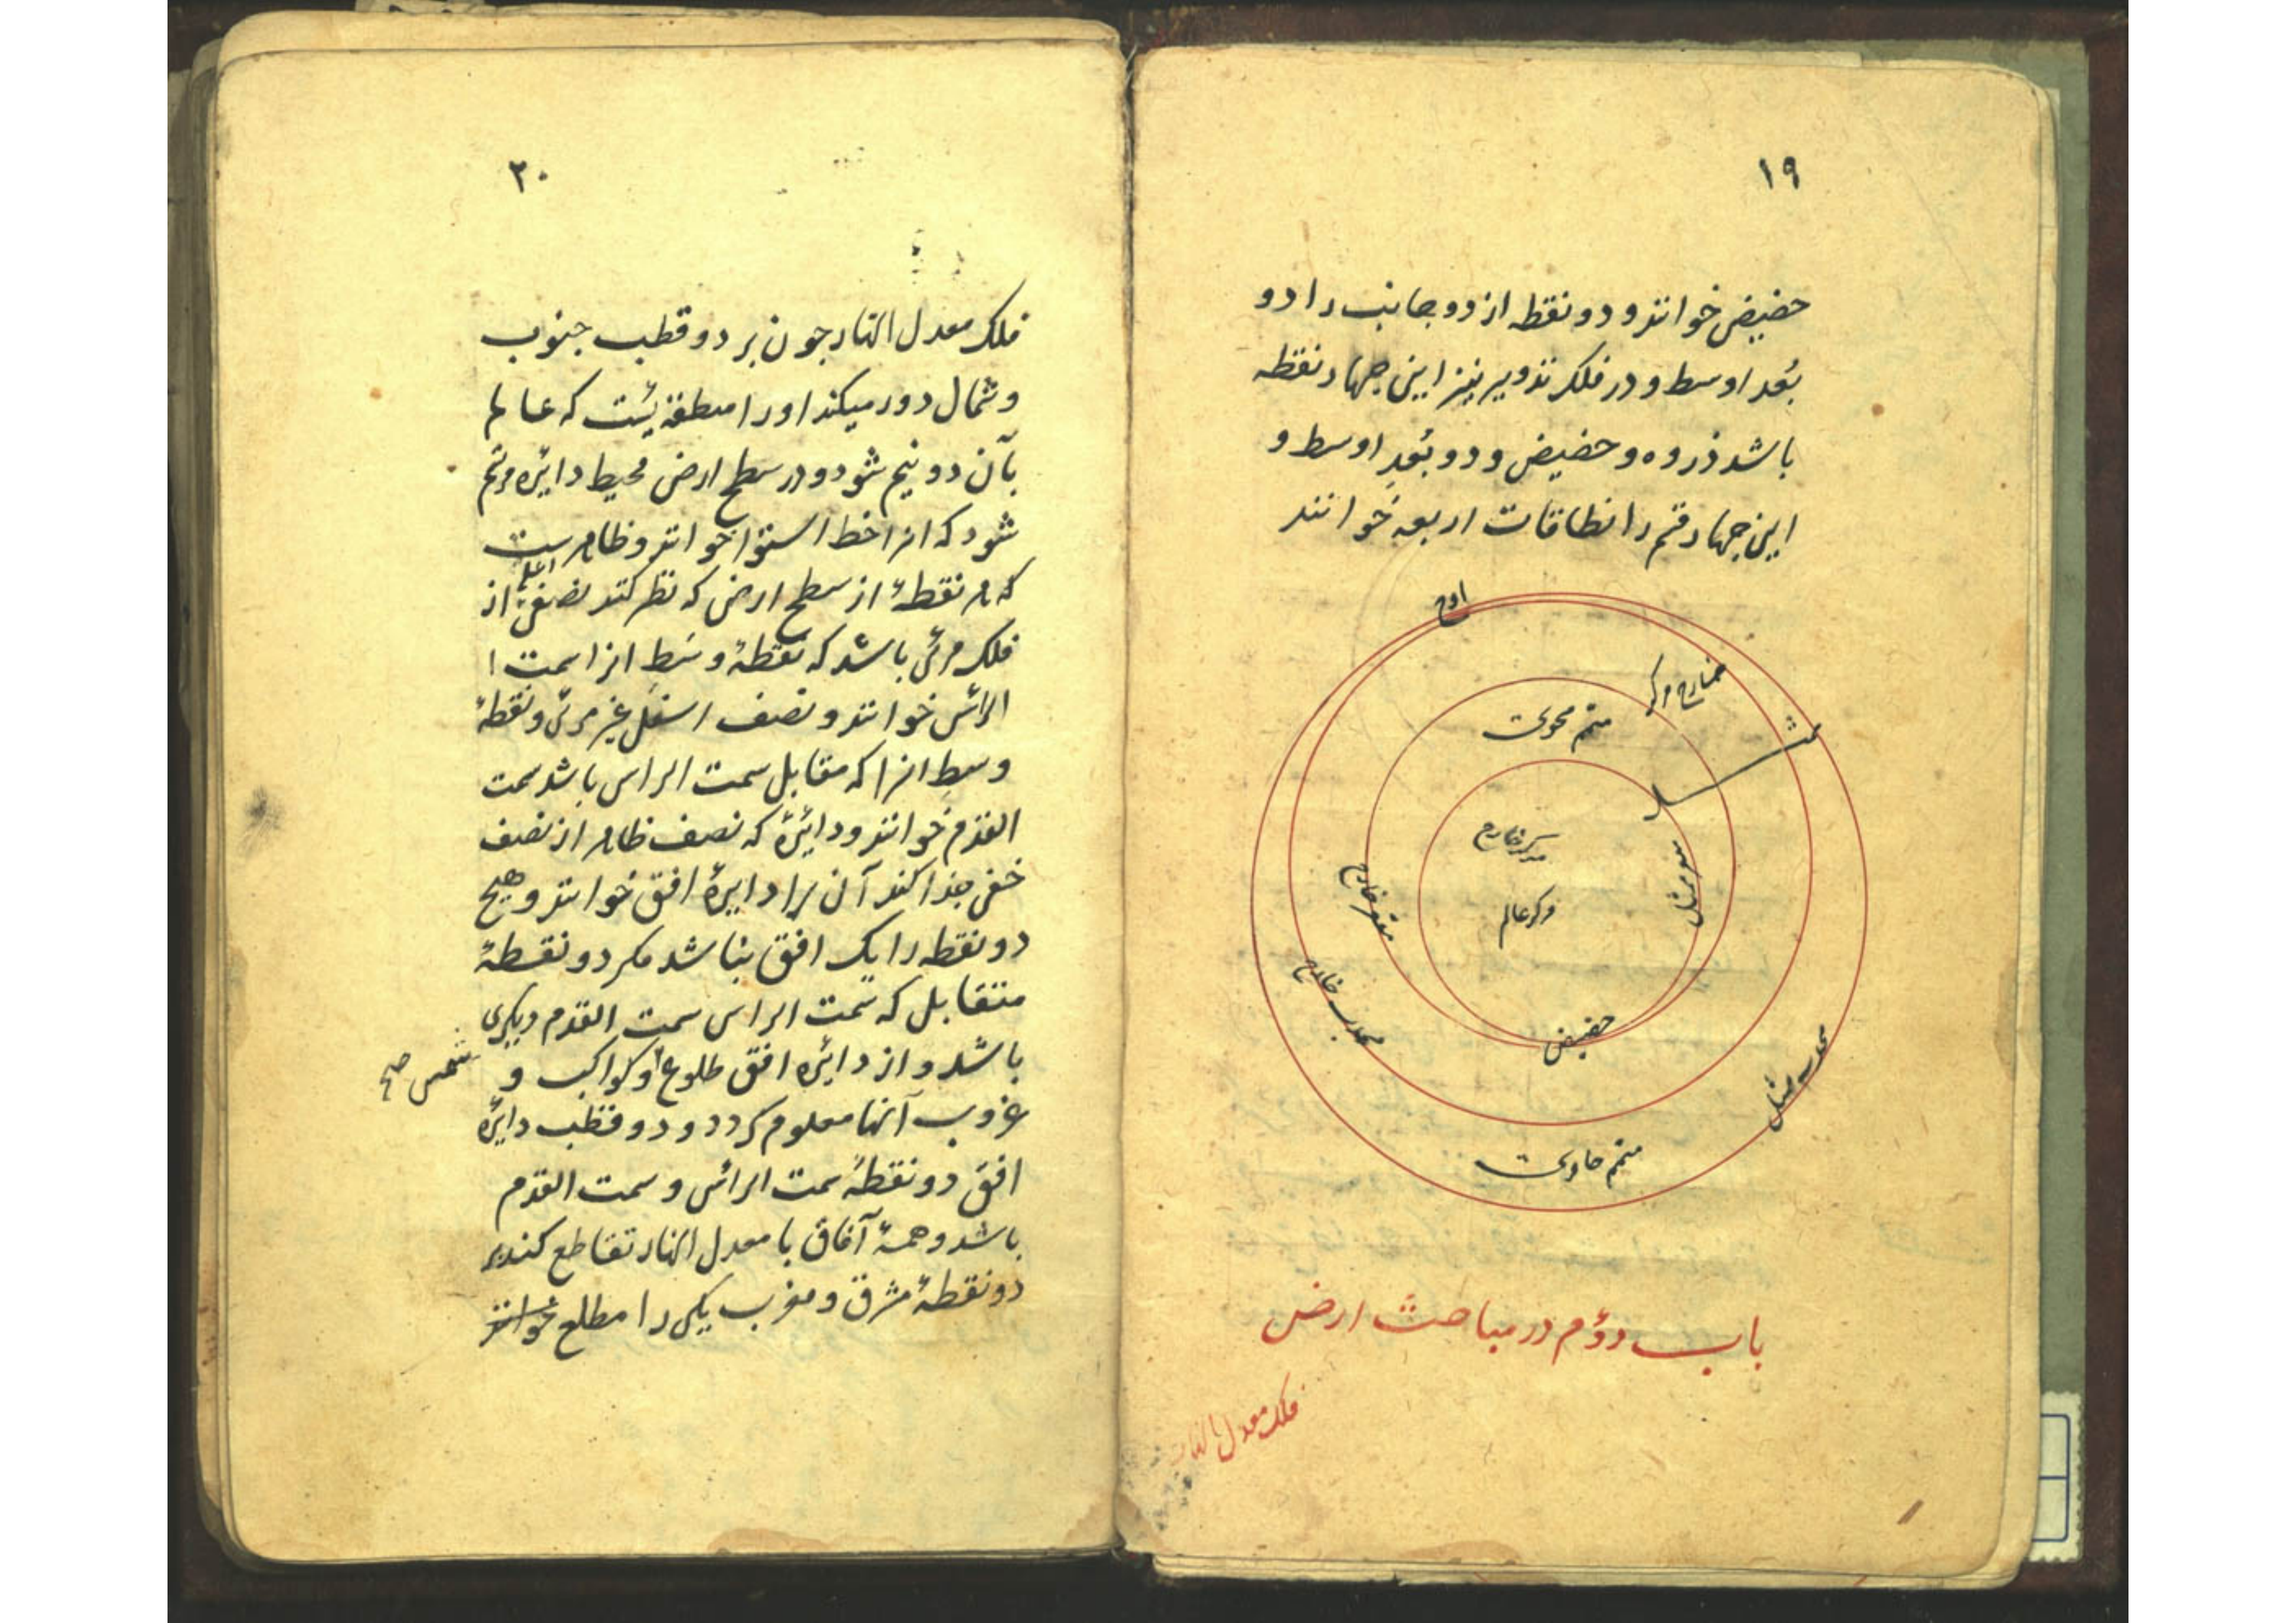 ١٩
حضیض خوانند و دو نقطه از دو جانب را دو
بُعد اوسط و در فلک تدویر نیز این چهار نقطه
باشد ذروه و حضیض و دو بُعد اوسط و
این چهار قسم را نطاقات اربعه خوانند
اوج
خارج مرکز
ممثل
متمم محوی
مرکز خارج
مرکز عالم
مقعر ممثل
مقعر خارج
محدب خارج
حضیض
محدب ممثل
متمم حاوی
باب دوّم در مباحث ارض
فلک معدل النهار
٢٠
فلک معدل النهار جون بر دو قطب جنوب
و شمال دور میکند او را منطقه یئست که عالم
بآن دو نیم شود و در سطح ارض محیط دائره مرتسم
شود که انرا خط استوا خوانند و ظاهرست
که هر نقطهٔ از سطح ارض که نظر کنند نصفی اعلی از
فلک مرئی باشد که نقطهٔ وسَط انرا سمت ا
الرائس خوانند و نصف اسفل غیر مرئی و نقطهٔ
وسط انرا که مقابل سمت الراس باشد سمت
القدم خوانند و دائرهٔ که نصف ظاهر از نصف
خفی جذا کند آن را دایرهٔ افق خوانند و هیچ
دو نقطه را یک افق نباشد مکر دو نقطهٔ
متقابل که سمت الراس سمت القدم دیکری
باشد و از دائره افق طلوع و کواکب و
شمس صح
غروب آنها معلوم کردد و دو قطب دایرهٔ
افق دو نقطهٔ سمت الرائس و سمت القدم
باشد و همهٔ آفاق با معدل النهار تقاطع کند بر
دو نقطهٔ مشرق و مغرب یکی را مطلع خوانند